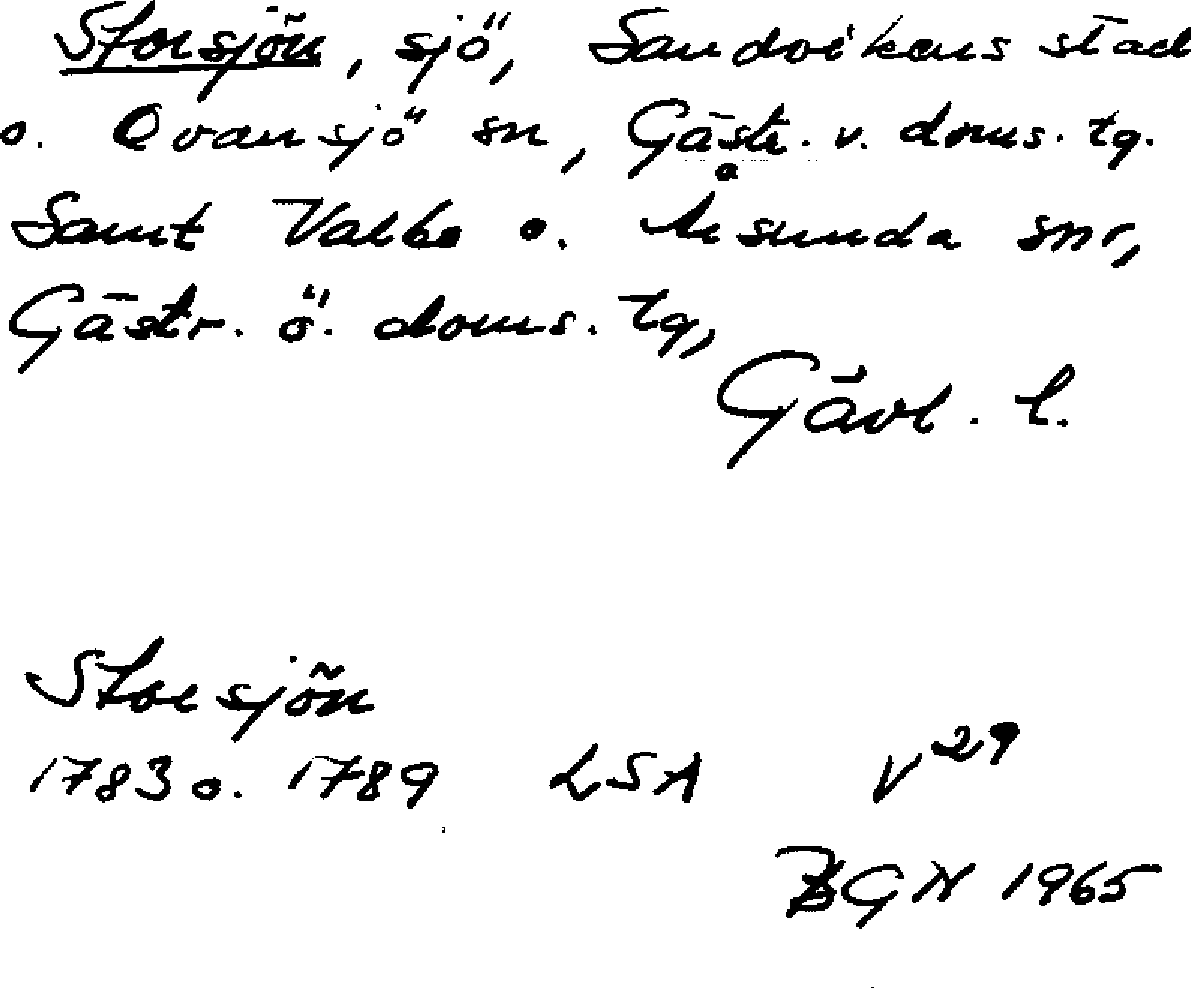 Storsjön, sjö, Sandvikens stad
o. Ovansjö sn, Gästr. v. doms. tg.
Samt Valbo o. Årsunda snr,
Gästr. ö. doms. tg,
Gävl. l.
Storsjön
1783 o. 1789 LSA V 29
BGN 1965